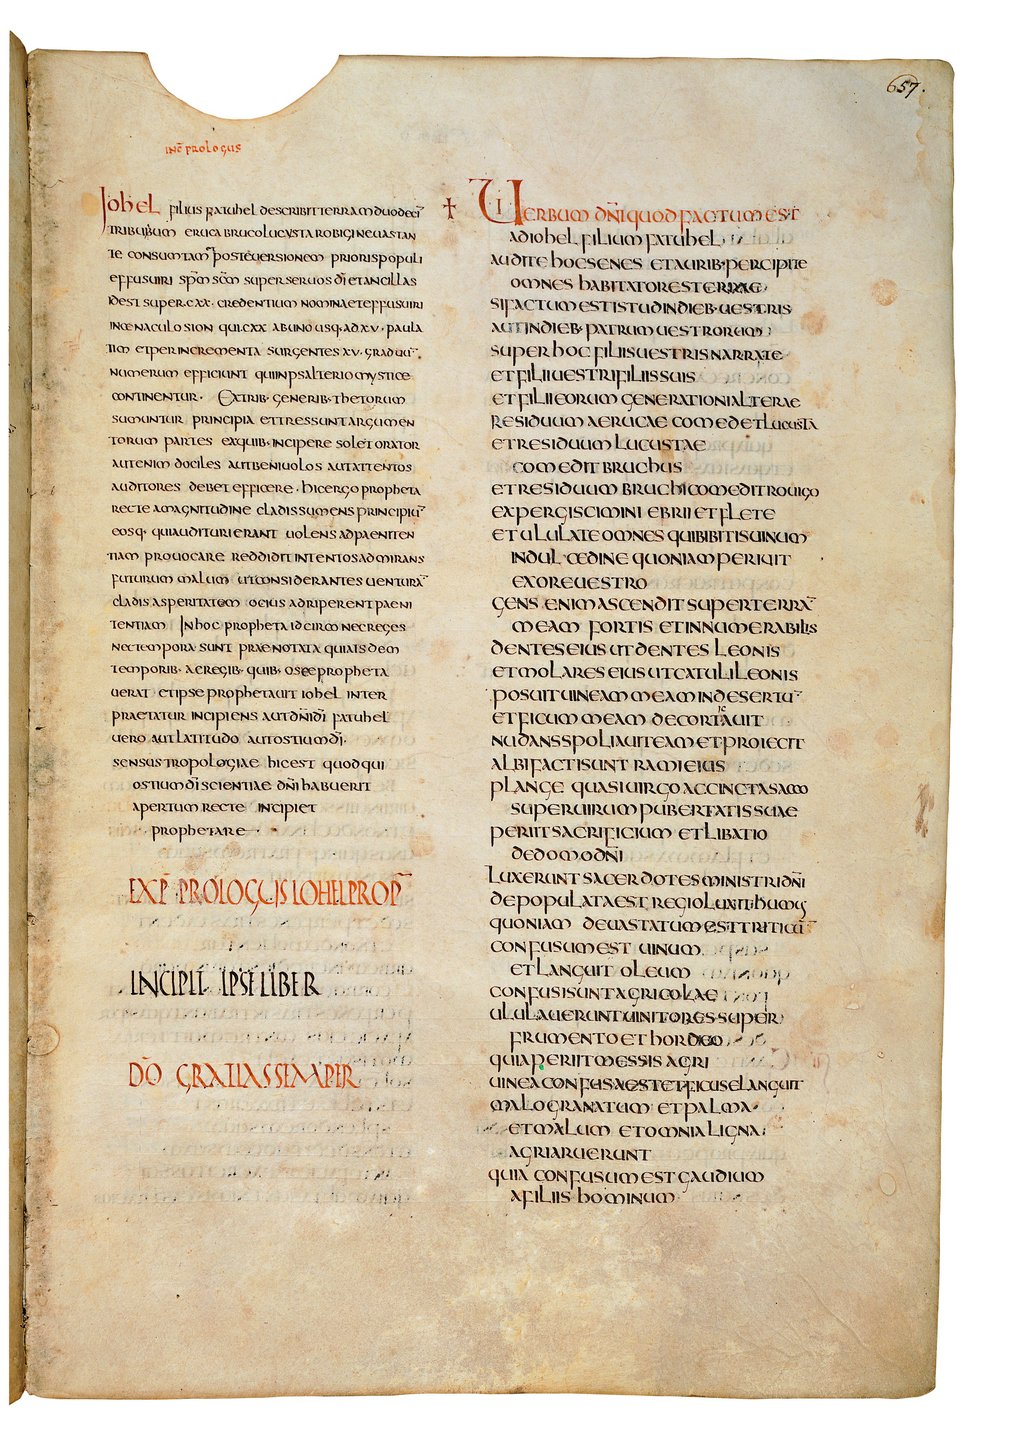 657.
INC̄ PROLOGUS
Johel filius fatuhel describit terram duodecī
tribuum eruca bruco lucusta robigine uastan
te consumtam
effusuiri sp̄m sc̄m super seruos dī et ancillas
idest super cxx · credentium nomina et effusuiri
in cenaculo sion qui cxx ab uno usq· ad xv · paula
tim et per incrementa surgentes xv · graduū
numerum efficiunt qui in psalterio mystice
continentur · Et xrib· generib· rhetorum
sumuntur principia et tres sunt argumen
torum partes ex quib· incipere solet orator
aut enim dociles aut beniuolos aut attentos
auditores debet efficere · hic ergo propheta
recte a magnitudine cladis sumens principiū
eosq· qui audituri erant uolens ad paeniten
tiam prouocare reddidit intentos admirans
futurum malum ut considerantes uenturā
cladis asperitatem ocius adriperent paeni
tentiam In hoc propheta idcirco nec reges
nec tempora sunt praenotata quia isdem
temporib· ac regib· quib· osee propheta
uerat et ipse prophetauit iohel inter
praetatur incipiens aut dn̄i dī fatuhel
uero aut latitudo aut ostium dī·
sensus tropologiae hic est quod qui
ostium dī scientiae dn̄i habuerit
apertum recte incipiet
prophetare
EXP̄ PROLOGUS IOHEL PROP̄
INCIPIT IPSE LIBER
DŌ GRATIAS SEMPER
I
✝ Uerbum dn̄i quod factum est
ad iohel filium fatuhel
audite hoc senes et aurib· percipite
omnes habitatores terrae
si factum est istud in dieb· uestris
aut in dieb· patrum uestrorum
super hoc filiis uestris narrate
et filii uestri filiis suis
et filii eorum generationi alterae
residuum aerucae comedet lucusta
et residuum lucustae
comedit bruchus
et residuum bruchi comedit rouigo
expergiscimini ebrii et flete
et ululate omnes qui bibitis uinum
in dulcedine quoniam periuit
ex ore uestro
gens enim ascendit super terrā
meam fortis et innumerabilis
dentes eius ut dentes leonis
et molares eius ut catuli leonis
posuit uineam meam in desertū
et ficum meam decortauit
nudans spoliauit eam et proiecit
albi facti sunt rami eius
plange quasi uirgo accincta sacco
super uirum pubertatis suae
periit sacrificium et libatio
de domo dn̄i
luxerunt sacerdotes ministri dn̄i
depopulata est regio luxit humus
quoniam deuastatum est triticū
confusum est uinum
et languit oleum
confusi sunt agricolae
ululauerunt uinitores super
frumento et hordeo
quia periit messis agri
uinea confusa est et ficus elanguit
malogranatum et palma
et malum et omnia ligna
agri aruerunt
quia confusum est gaudium
a filiis hominum